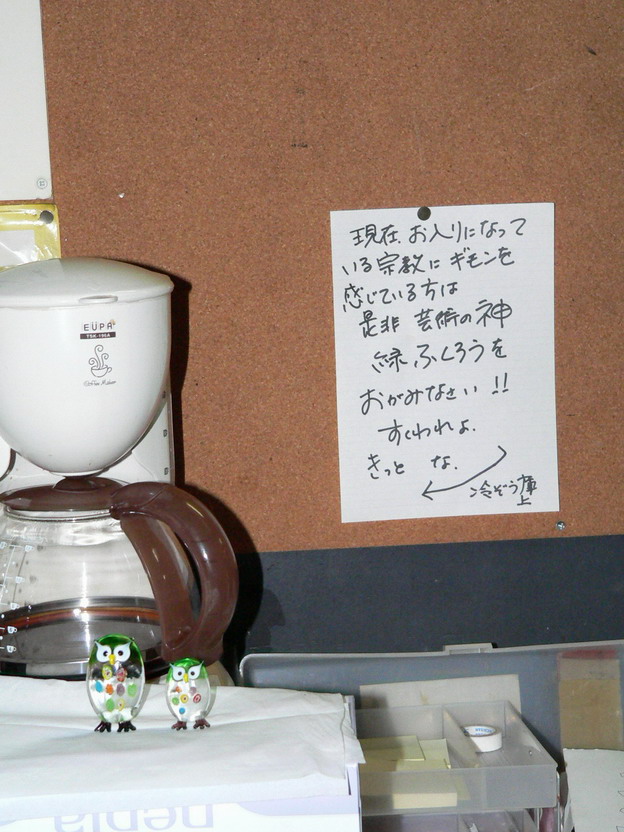 EUPA
TSK-195A
Coffee Maker
現在、お入りになって
いる宗教に ギモンを
感じている方は
是非 芸術の神
緑ふくろうを
おがみなさい!!
すくわれよ。
きっと な。
冷ぞう庫
上
nepia